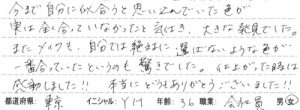 今まで自分に似合うと思い込んでいた色が
実は全く合っていなかったと気付き、大きな発見でした。
またメイクも、自分では絶対に選ばないような色が
一番合っていたというのも驚きでした。仕上がった時は
感動しました!!本当にどうもありがとうございました!!
都道府県: 東京 イニシャル: Y.M 年齢: 36 職業: 会社員 男・女